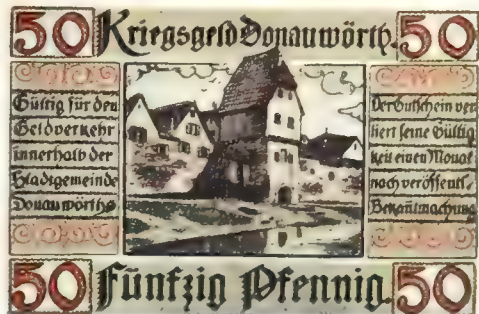 50 Kriegsgeld Donauwörth. 50
Gültig für den
Geldverkehr
innerhalb der
Stadtgemeinde
Donauwörths
Der Gutschein ver
liert seine Gültig
keit einen Monat
nach veröffentl.
Bekantmachung
50 Fünfzig Pfennig. 50